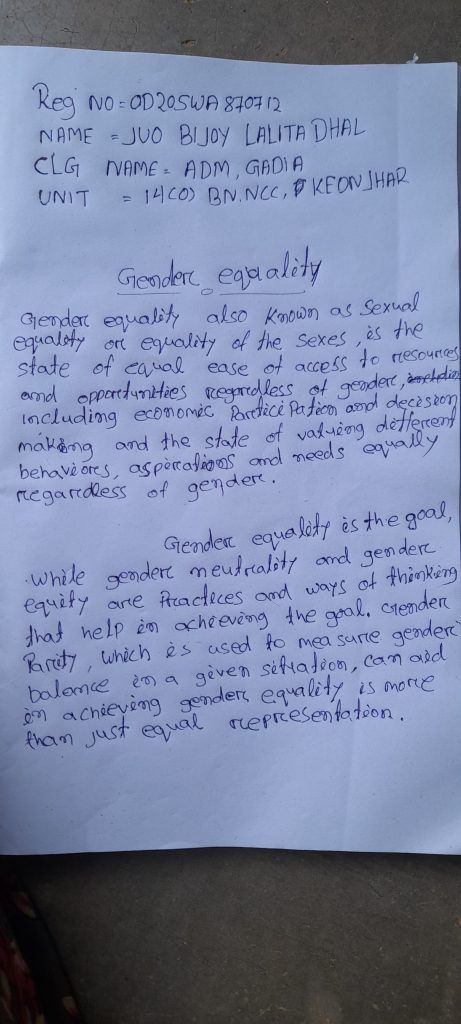 Reg NO = OD20SWA870712
NAME = JUO BIJOY LALITA DHAL
CLG NAME = ADM, GADIA
UNIT = 14(O) BN.NCC, KEONJHAR
Gender equality
Gender equality also known as sexual
equality or equality of the sexes, is the
state of equal ease of access to resources
and opportunities regardless of gender,
including economic Participation and decision
making and the state of valuing different
behaviors, aspirations and needs equally
regardless of gender.
Gender equality is the goal,
while gender neutrality and gender
equity are Practices and ways of thinking
that help in achieving the goal. Gender
Parity, which is used to measure gender
balance in a given situation, can aid
in achieving gender equality is more
than just equal representation.